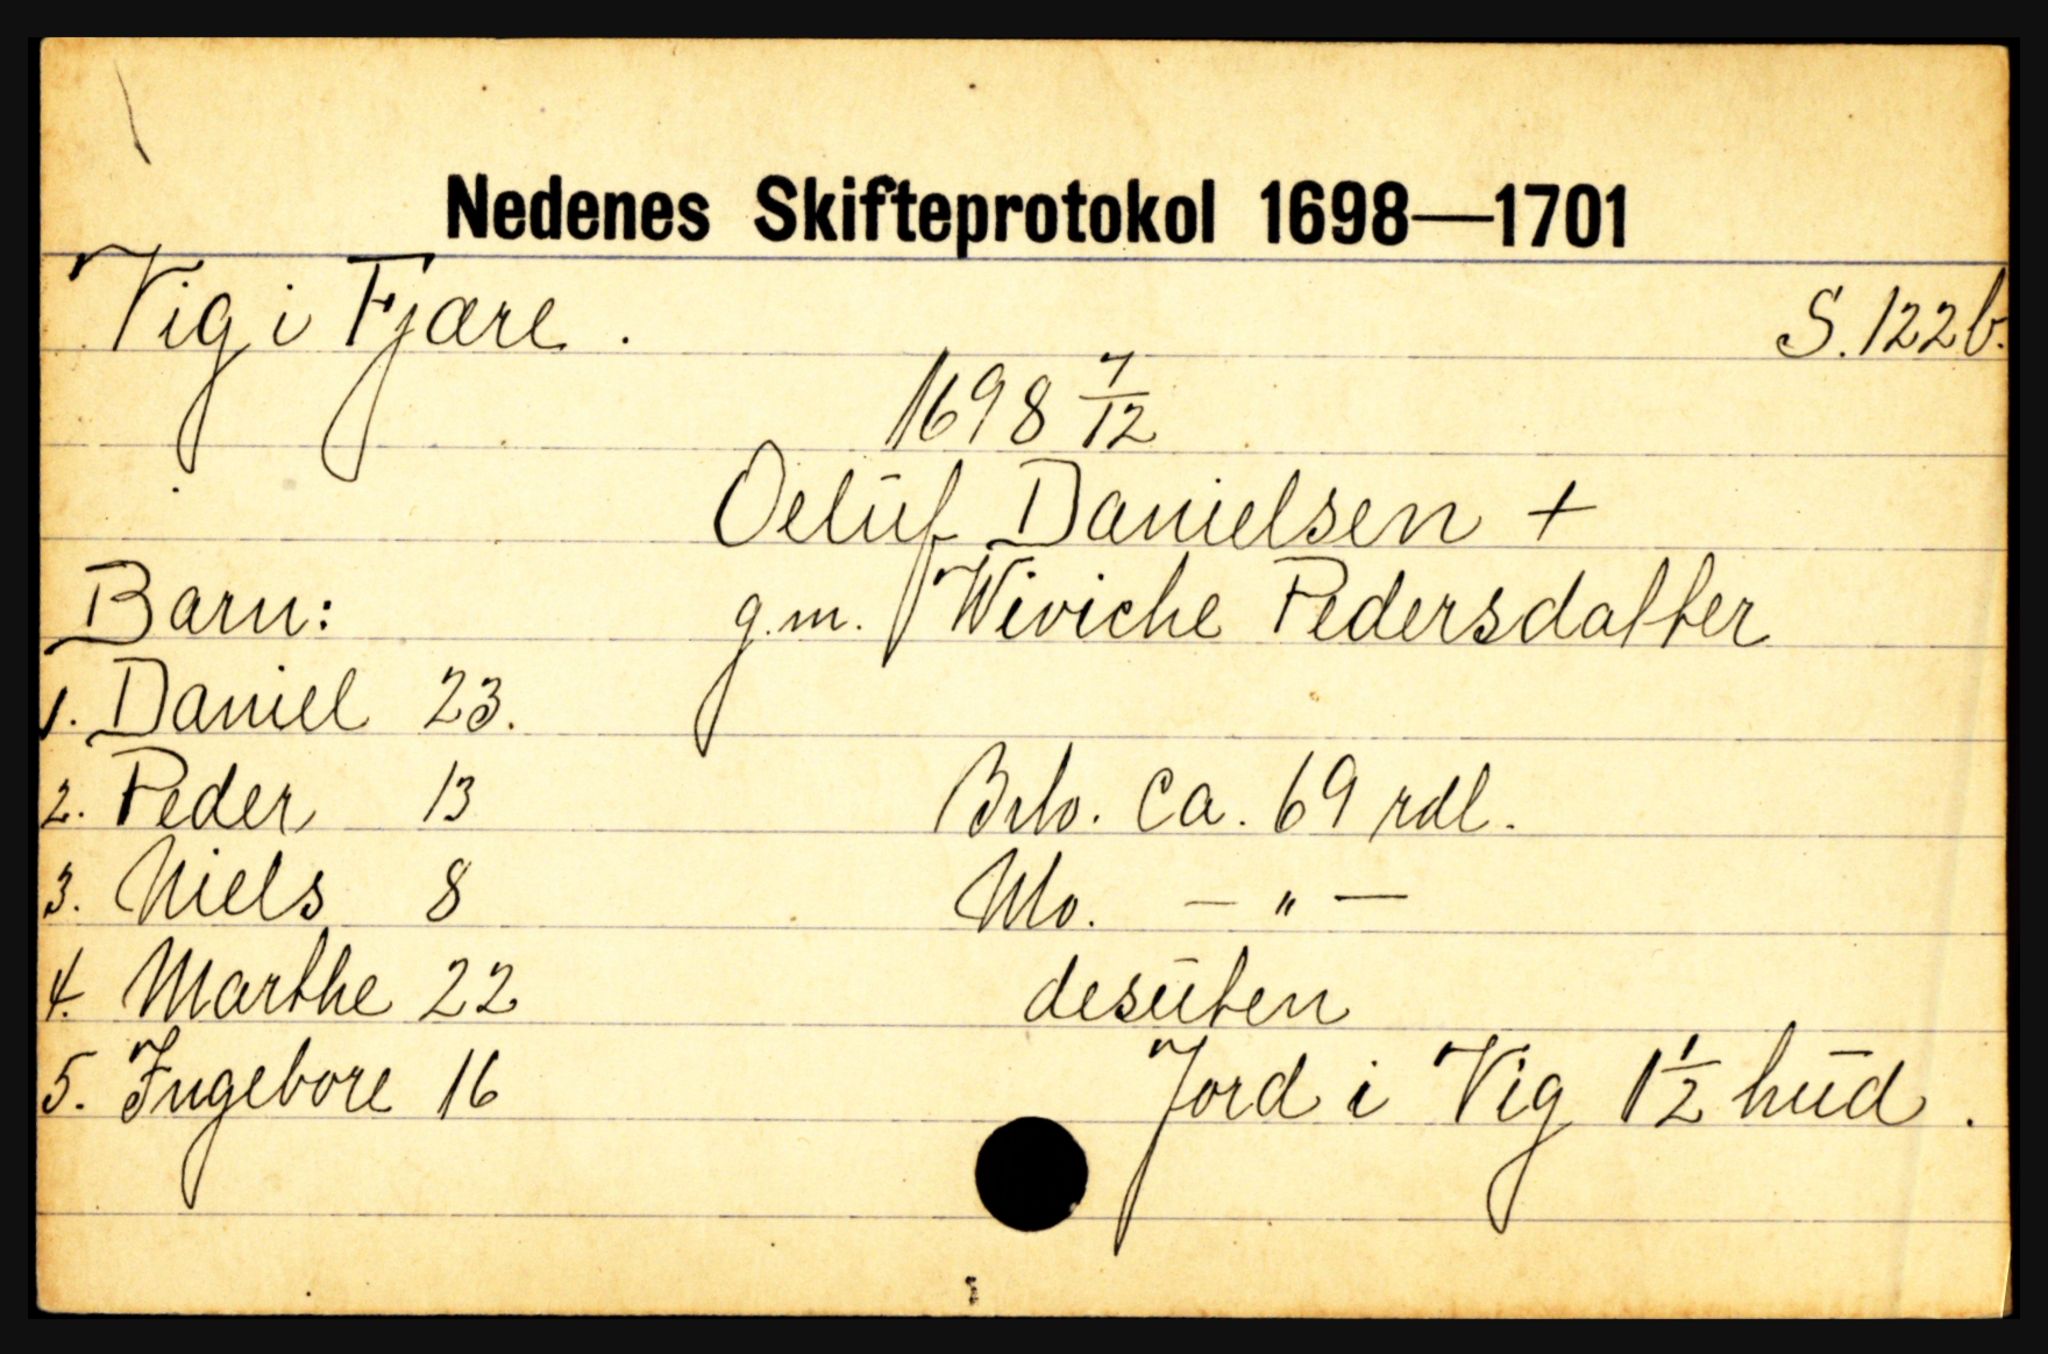 Nedenes Skifteprotokol 1698—1701
Vig i Fjære. S. 122b.
1698 7/12
Oeluf Danielsen +
Barn: g.m. Wiviche Pedersdatter
1. Daniel 23.
2. Peder 13 Brb. ca. 69 rdl.
3. Niels 8 Nb. — " —
4. Marthe 22 desuten
5. Ingebore 16 Jord i Vig 1 1/2 hud.